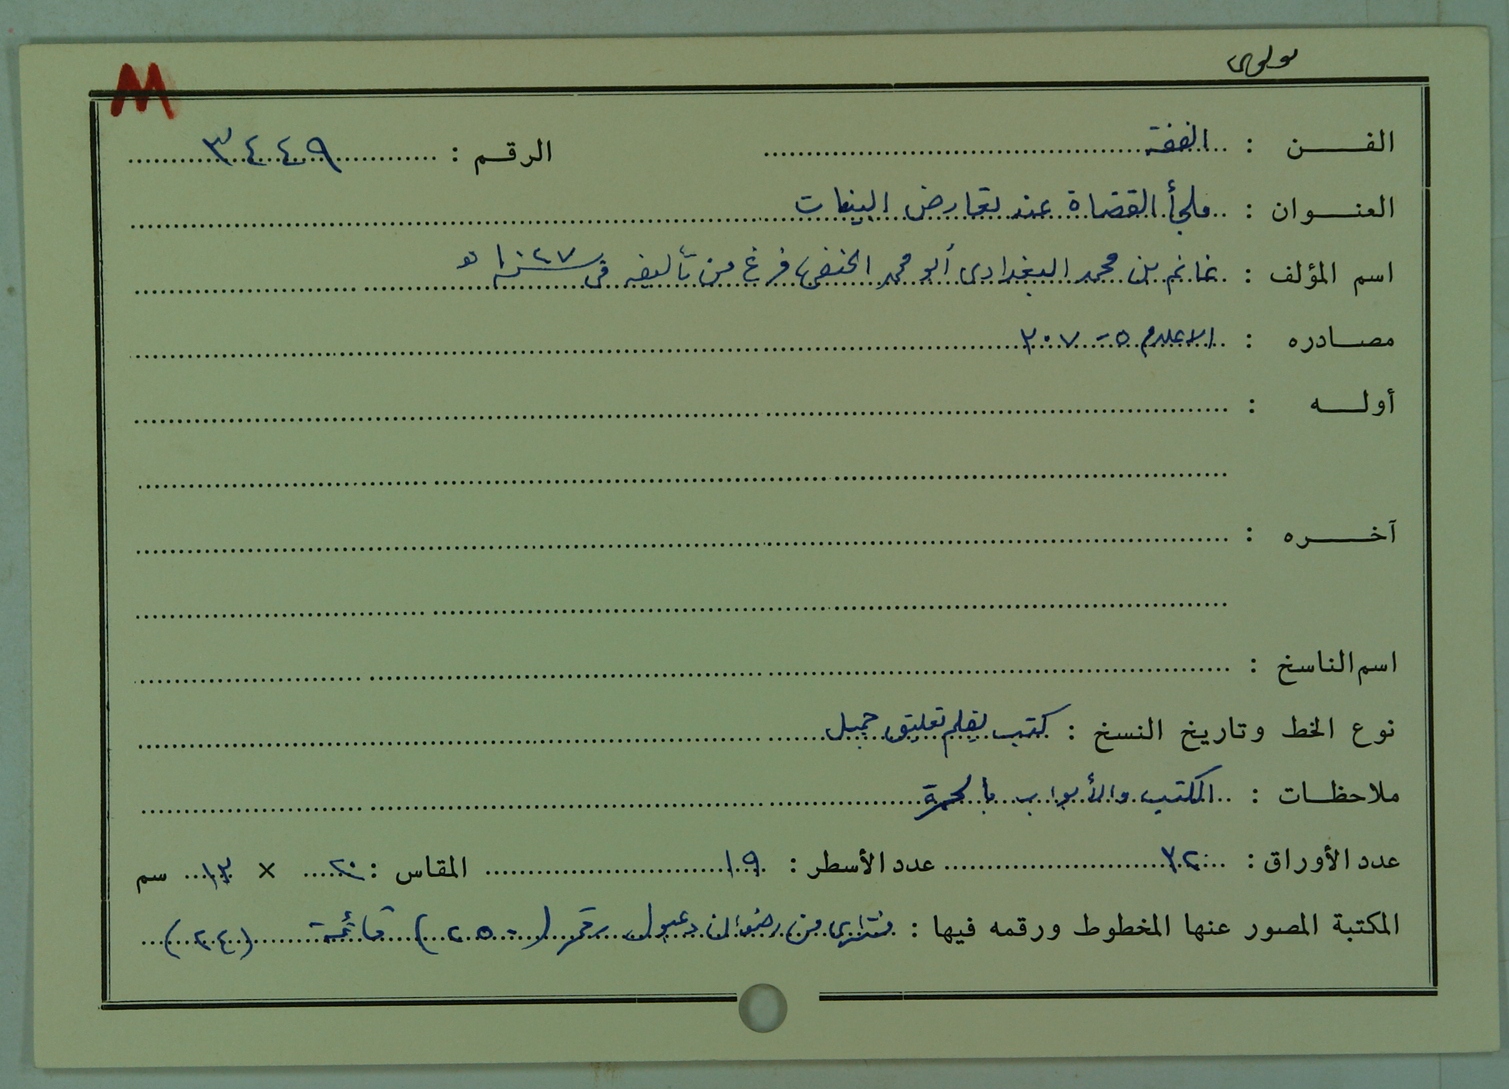 M
الفن : الفقة الرقم : ٣٤٤٩
العنوان : ملجأ القضاة عند تعارض البينات
اسم المؤلف : غانم بن محمد البغدادي أبو محمد الحنفي فرغ من تأليفه في سنة ١٠٢٧ هـ
مصادره : الاعلام ٥ - ٢٠٧
أوله :
آخره :
اسم الناسخ :
نوع الخط وتاريخ النسخ : كتب بقلم تعليق جميل
ملاحظات : الكتب والأبواب بالحمرة
عدد الأوراق : ٧٢ عدد الأسطر : ١٩ المقاس : ٢٠ × ١٣ سم
المكتبة المصور عنها المخطوط ورقمه فيها : مشترى من رضوان دعبول رقم (٢٥٠٠) قائمة (٢٤)